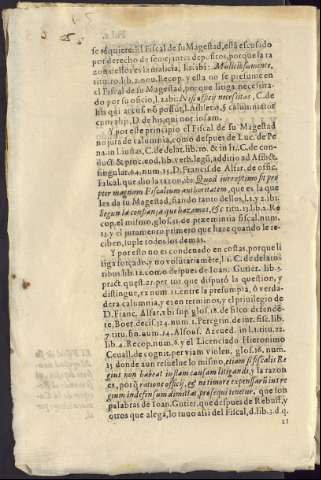 se requiere. El Fiscal de su Magestad, està escusido
por derecho de semejantes depositos, porque la ra
zon dellos es la malicia, l.2. ibi: Maliciosamente,
titu.10. lib.2. nou. Recop. y esta no se presume en
el Fiscal de su Magestad, porque litiga necessita-
do por su oficio, l. 2 ibi: Nisi officij necessitas, C. de
his qui accus. nõ possut, l. Athleta, §. calumniator
D. de his, qui not. infam.
Y por este principio el Fiscal de su Magestad
no jura de calumnia, como despues de Luc. de Pe
na in l. iustas, C. de delat. lib. 10. & in lt., C. de con-
duct & proc. eod. lib. verb. legis, additio ad Afflict.
singular. 64. num. 35. D. Francis. de Alfar. de offic.
Fiscal. que dio la razon, ibi: Quod introstimo sit pro
pter magnam Fiscalium authoritatem, que es la que
les da su Magestad, fiando tanto dellos, l.1 y 2. ibi:
segun la confiança que hazemos, &c titu. 13. lib. 2. Re-
cop. el mismo, glos. 2. de præeminentia fiscal. num.
23. y el juramento primero que haze quando le re-
ciben, suple todos los demas.
Y por esto no es condenado en costas, porque li
tiga forçado, y no voluntariamẽte, l. 1. C. de delato
ribus lib. 12. como despues de Ioan. Gutier. lib. 3.
pract. quæst. 27. per tot. que disputò la question, y
distingue, ex num. 11. entre la presumpta, ò verda-
dera calumnia, y es en terminos, y el priuilegio de
D. Franc. Alfar. vbi sup. glos. 18. de fisco defende-
re, Boer. decis. 124. num. 1. Peregrin. de iur. fisc. lib.
7. titu. fin. num. 14. Alfons. Azeued. in l.1. titu. 22.
lib. 4. Recop. num. 6. y el Licenciado Hieronimo
Ceuall. de cognit. per viam violen. glos. 16. num.
15. donde aun resuelue lo mismo, etiam si fiscalis Re
gius non habeat iustam causam litigandi, y la razon
es, porq̃ ratione officij, & ne timore expensarũ ius re
gium indefensum dimittat, prosequi tenetur, que son
palabras de Ioan. Gutier. que despues de Rebuff. y
otros que alega, lo tuuo assi del Fiscal, d. lib. 3. d. q.
21